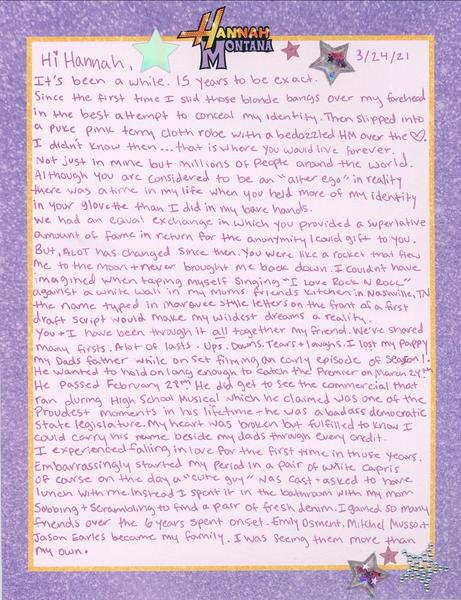 HANNAH
MONTANA
Hi Hannah,
3/24/21
It's been a while. 15 years to be exact.
Since the first time I slid those blonde bangs over my forehead
in the best attempt to conceal my identity. Then slipped into
a puke pink terry cloth robe with a bedazzled HM over the ♡.
I didn't know then... that is where you would live forever.
Not just in mine but millions of people around the world.
Although you are considered to be an "alter ego" in reality
there was a time in my life when you held more of my identity
in your glovette than I did in my bare hands.
We had an equal exchange in which you provided a superlative
amount of fame in return for the anonymity I could gift to you.
But, ALOT has changed since then. You were like a rocket that flew
me to the moon + never brought me back down. I couldn't have
imagined when taping myself singing "I Love Rock N Roll"
against a white wall in my moms friends kitchen in Nashville, TN
the name typed in marquee style letters on the front of a first
draft script would make my wildest dreams a reality.
You + I have been through it all together my friend. We've shared
many firsts. Alot of lasts. Ups. Downs. Tears + laughs. I lost my pappy
my Dads father while on set filming an early episode of Season 1.
He wanted to hold on long enough to catch the Premier on March 24th
He passed February 28th He did get to see the commercial that
ran during High School Musical which he claimed was one of the
Proudest moments in his lifetime + he was a badass democratic
State legislature. My heart was broken but fulfilled to know I
could carry his name beside my dads through every credit.
I experienced falling in love for the first time in those years.
Embarrassingly started my period in a pair of white capris
of carse on the day a "cute guy" was cast + asked to have
lunch with me. Instead I spent it in the bathroom with my mom
Sobbing + Scrambling to find a pair of fresh denim. I gained so many
friends over the 6 years spent on set. Emily Osment, Mitchel Musso +
Jason Earles became my family. I was seeing them more than
my own.